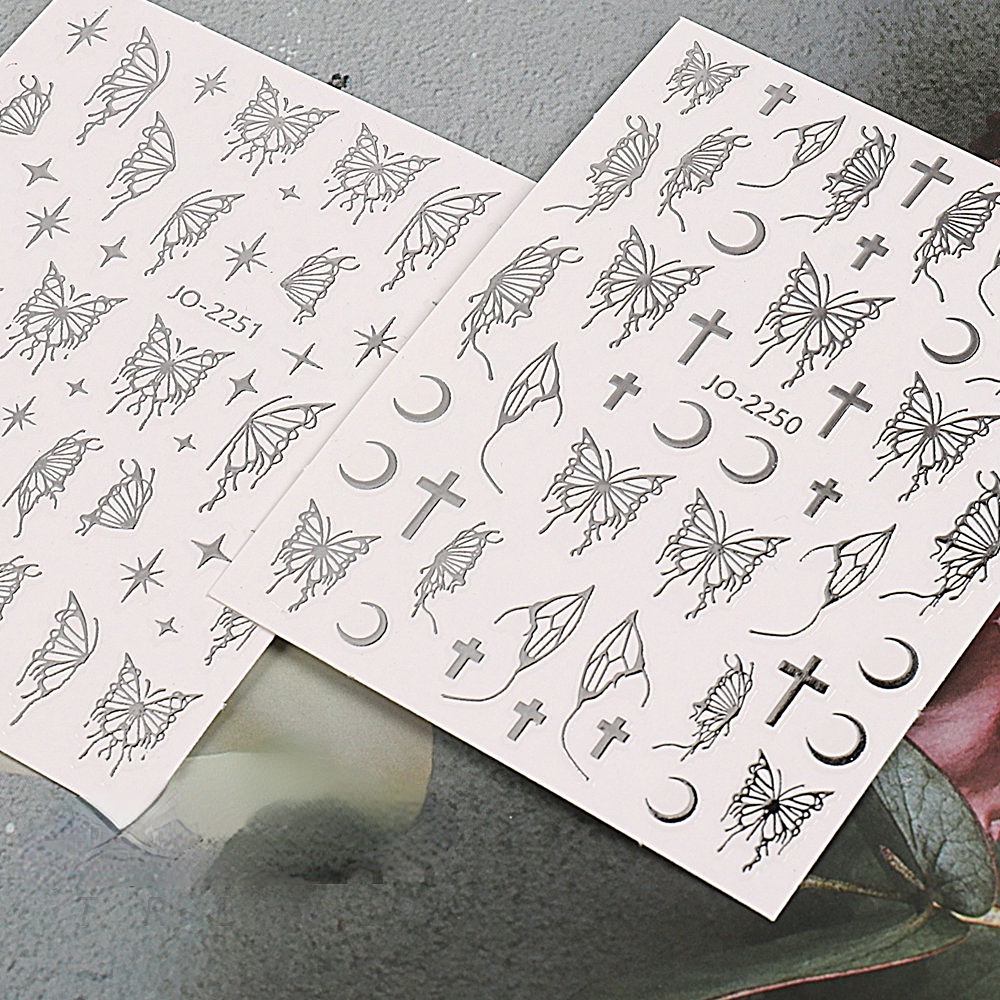 JO-2251
JO-2250